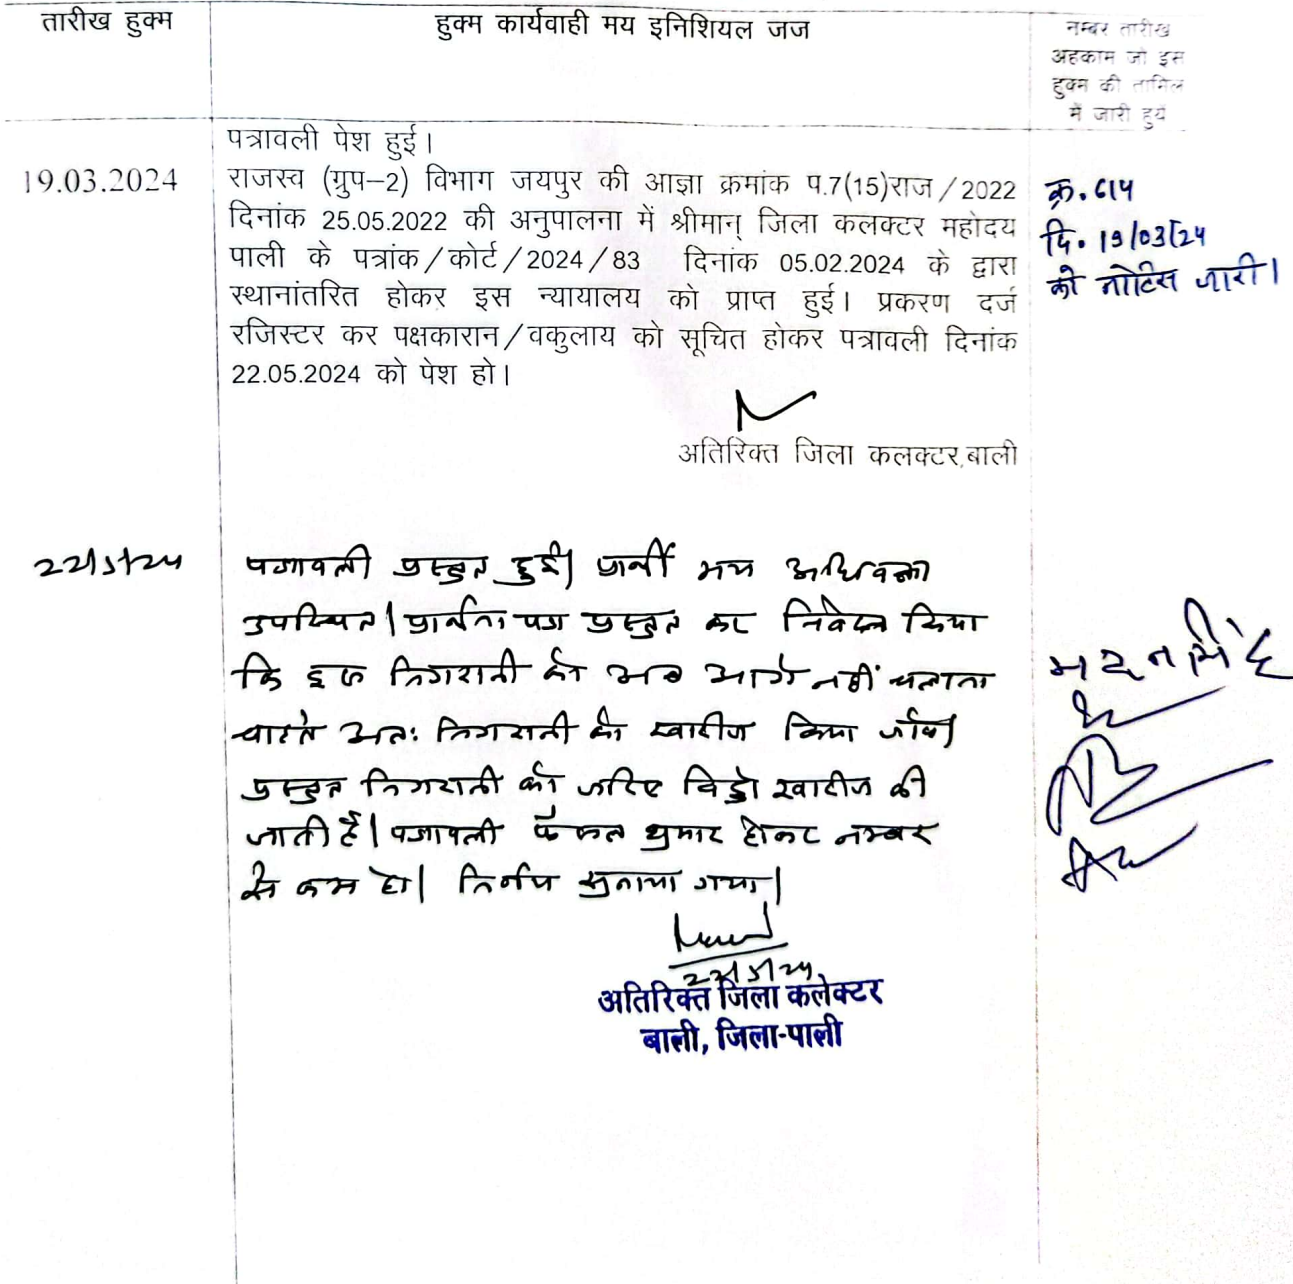 तारीख हुक्म
हुक्म कार्यवाही मय इनिशियल जज
नम्बर तारीख
अहकाम जो इस
हुक्म की तामिल
में जारी हुये
पत्रावली पेश हुई।
19.03.2024
राजस्व (ग्रुप–2) विभाग जयपुर की आज्ञा क्रमांक प.7(15)राज/2022
दिनांक 25.05.2022 की अनुपालना में श्रीमान् जिला कलक्टर महोदय
पाली के पत्रांक/कोर्ट/2024/83 दिनांक 05.02.2024 के द्वारा
स्थानांतरित होकर इस न्यायालय को प्राप्त हुई। प्रकरण दर्ज
रजिस्टर कर पक्षकारान/वकुलाय को सूचित होकर पत्रावली दिनांक
22.05.2024 को पेश हो।
क्र. 614
दि. 19/03/24
को नोटिस जारी।
अतिरिक्त जिला कलक्टर,बाली
22/5/24
पत्रावली प्रस्तुत हुई। प्रार्थी मय अधिवक्ता
उपस्थित। प्रार्थना पत्र प्रस्तुत कर निवेदन किया
कि इस निगरानी को अब आगे नहीं चलाना
चाहते अतः निगरानी को खारीज किया जावे।
प्रस्तुत निगरानी को जरिए विड्रो खारीज की
जाती है। पत्रावली फैसल शुमार होकर नम्बर
से कम हो। निर्णय सुनाया गया।
मदनसिंह
22/5/24
अतिरिक्त जिला कलेक्टर
बाली, जिला-पाली